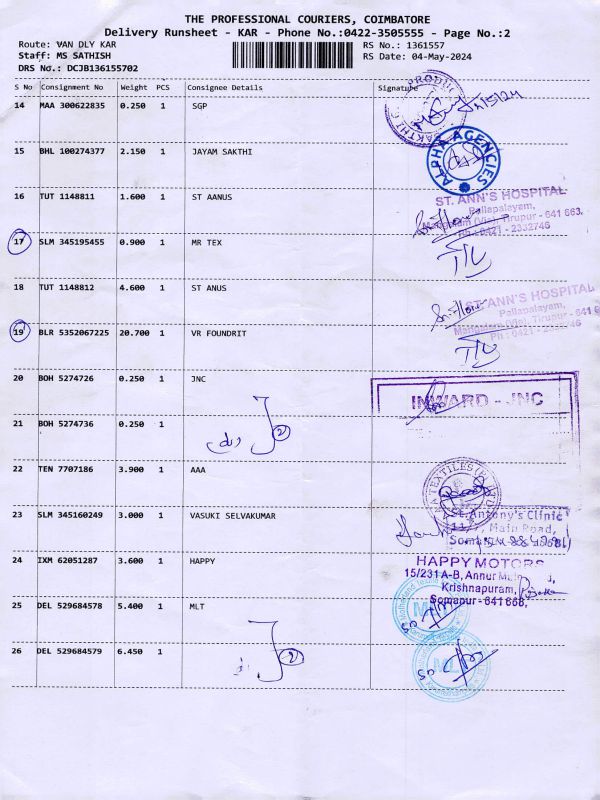 THE PROFESSIONAL COURIERS, COIMBATORE
Delivery Runsheet - KAR - Phone No.:0422-3505555 - Page No.:2
Route: VAN DLY KAR RS No.: 1361557
Staff: MS SATHISH RS Date: 04-May-2024
DRS No.: DCJB136155702
S No Consignment No Weight PCS Consignee Details Signature
14 MAA 300622835 0.250 1 SGP
15 BHL 100274377 2.150 1 JAYAM SAKTHI
ALPHA AGENCIES
16 TUT 1148811 1.600 1 ST AANUS
ST. ANN'S HOSPITAL
Pallapalayam,
Mangalam (Via), Tirupur - 641 663.
Ph : 0421 - 2332746
17 SLM 345195455 0.900 1 MR TEX
18 TUT 1148812 4.600 1 ST ANUS
ST. ANN'S HOSPITAL
Pallapalayam,
Mangalam (Via), Tirupur - 641 6
19 BLR 5352067225 20.700 1 VR FOUNDRIT
20 BOH 5274726 0.250 1 JNC
INWARD - JNC
21 BOH 5274736 0.250 1
2
22 TEN 7707186 3.900 1 AAA
23 SLM 345160249 3.000 1 VASUKI SELVAKUMAR
St. Antony's Clinic
Main Road,
24 IXM 62051287 3.600 1 HAPPY
HAPPY MOTORS
15/231 A-B, Annur
Krishnapuram,
Somapur - 641 668.
25 DEL 529684578 5.400 1 MLT
26 DEL 529684579 6.450 1
2